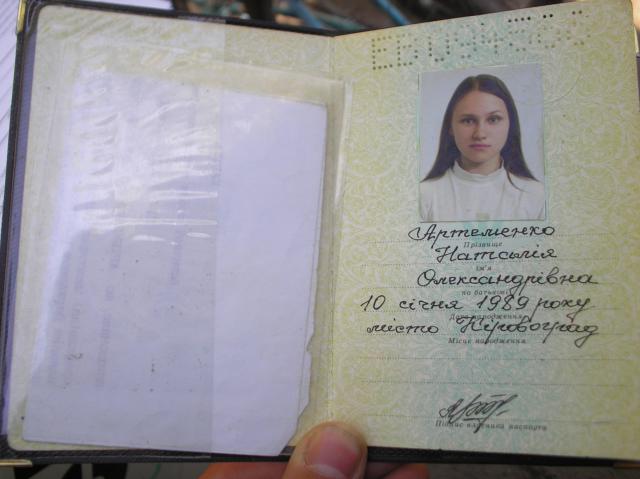 Артеменко
Прізвище
Наталія
ім'я
Олександрівна
по батькові
10 січня 1989 року
Дата народження
місто Кіровоград
Місце народження
Підпис власника паспорта